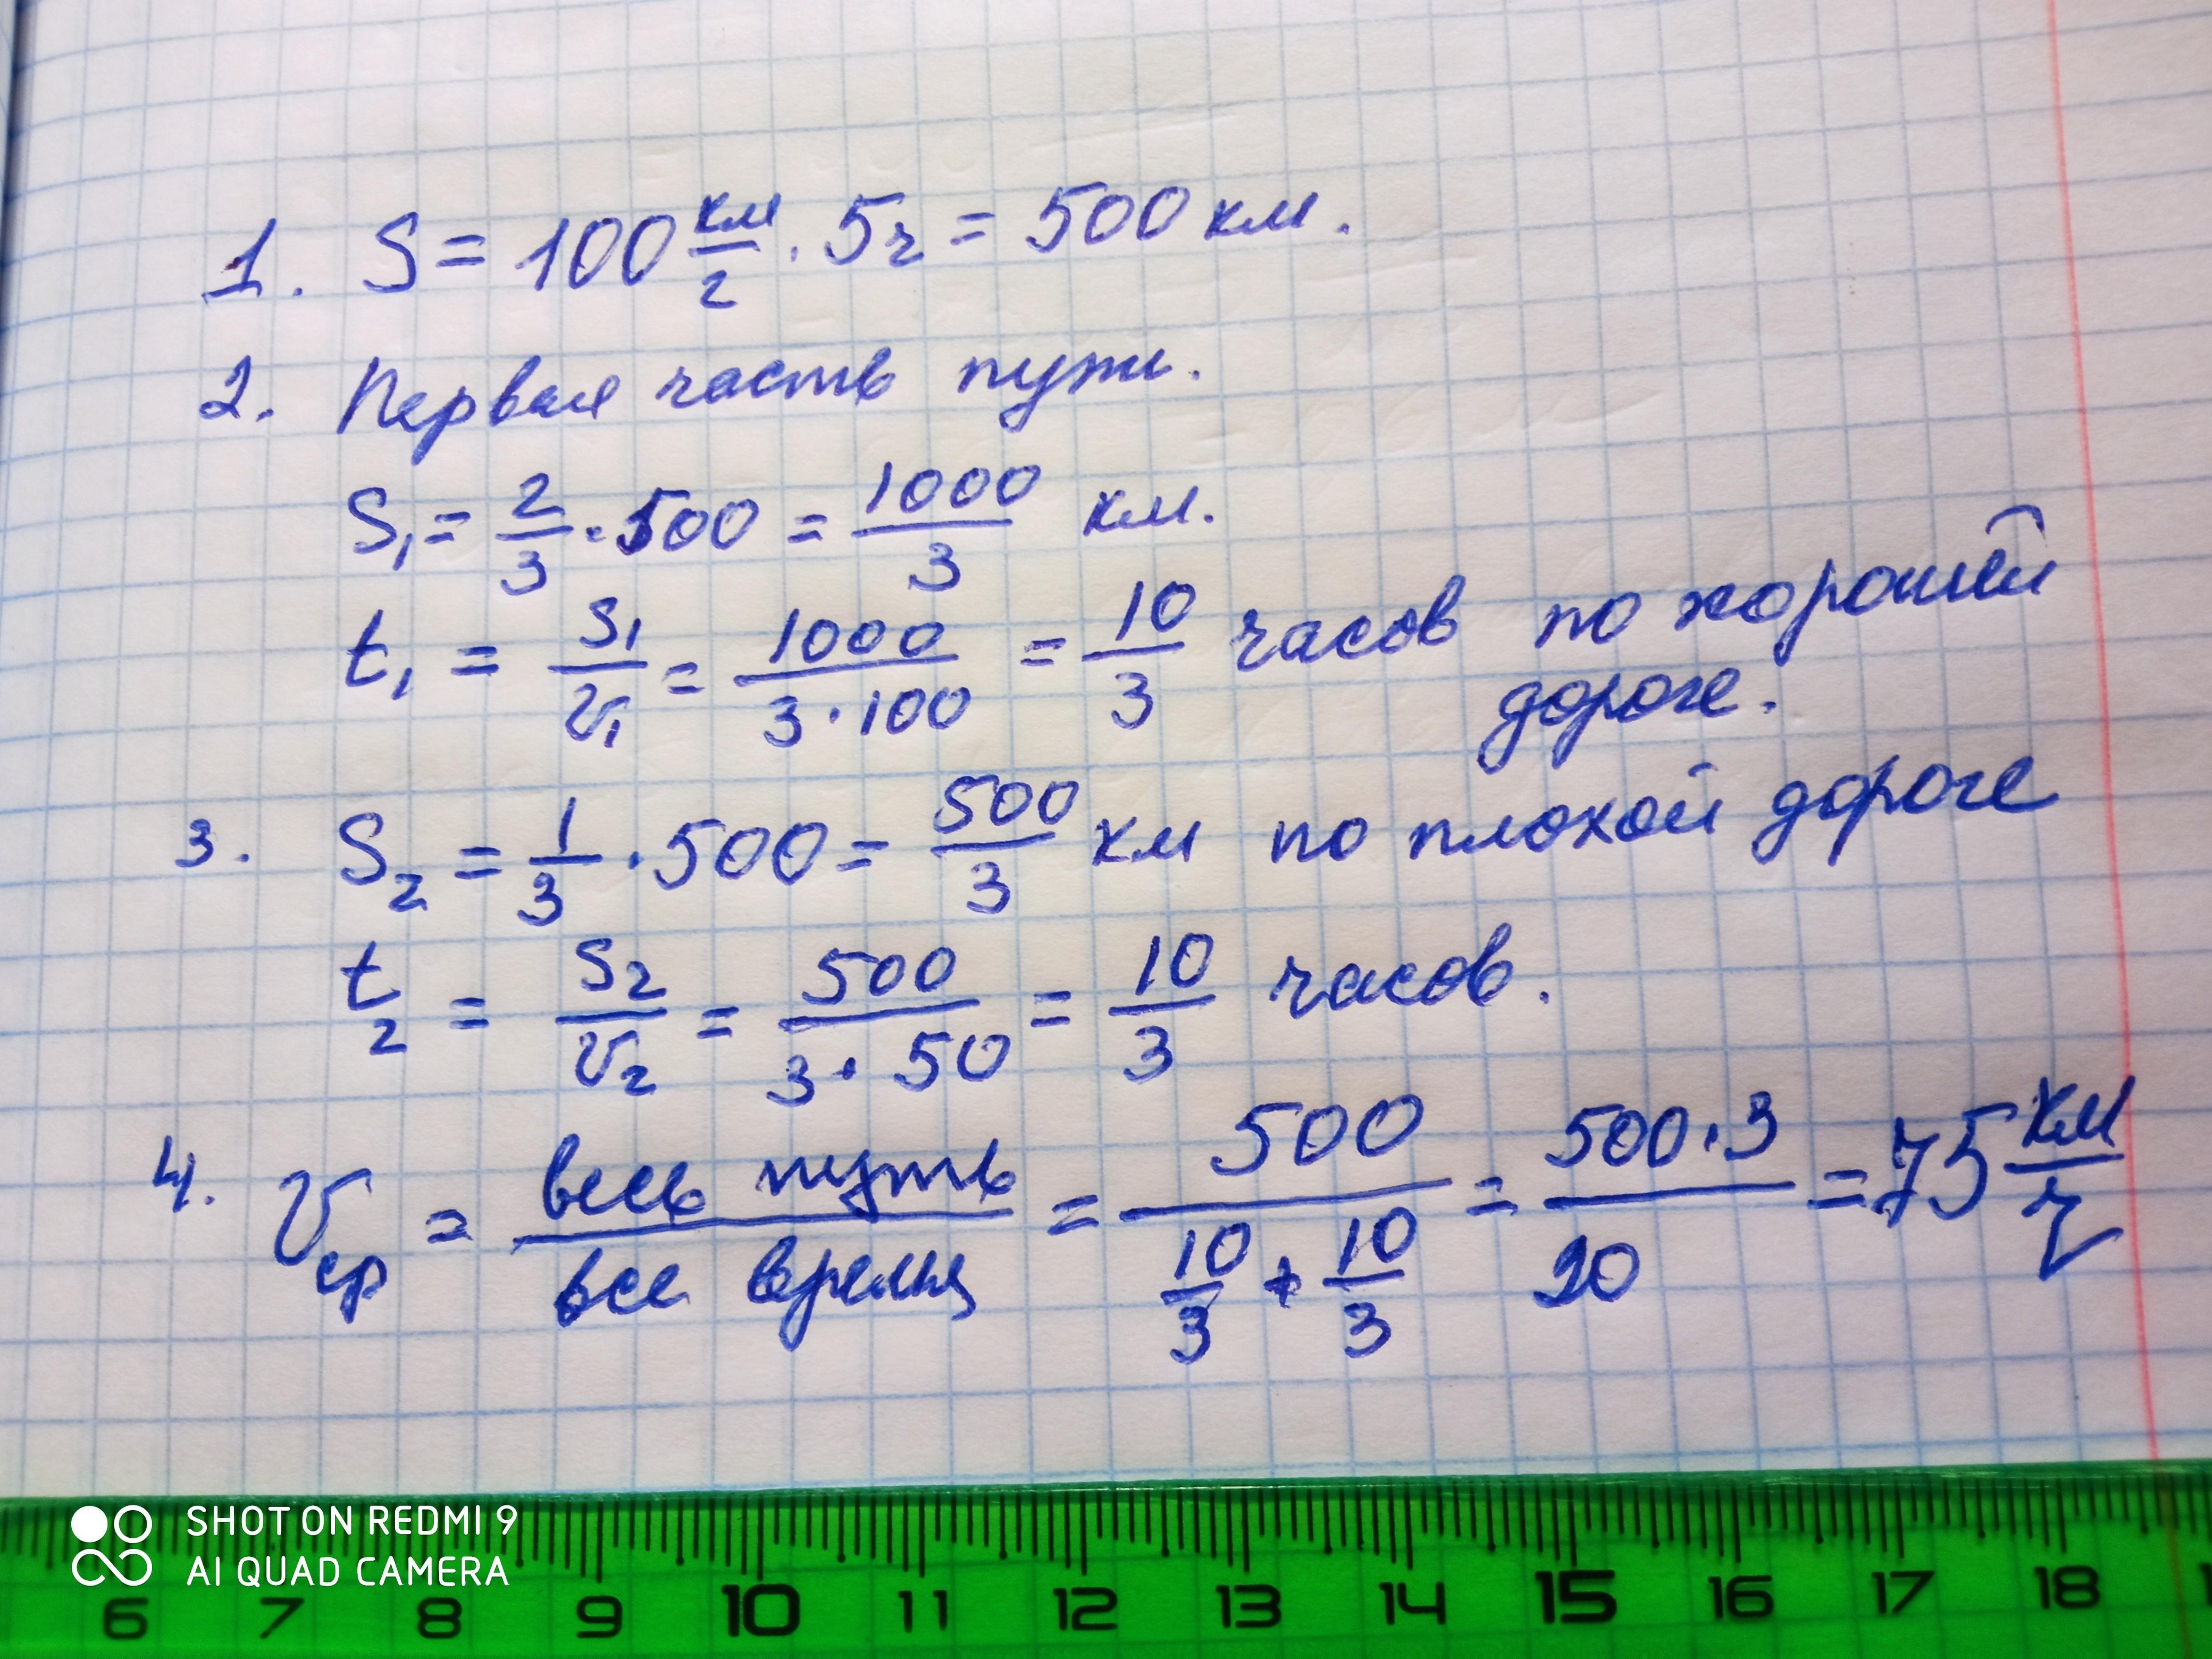 1. S = 100 км/ч · 5ч = 500 км.
2. Первая часть пути.
S₁ = 2/3 · 500 = 1000/3 км.
t₁ = S₁/v₁ = 1000/(3·100) = 10/3 часов по хорошей
дороге.
3. S₂ = 1/3 · 500 = 500/3 км по плохой дороге
t₂ = S₂/v₂ = 500/(3·50) = 10/3 часов.
4. vср = весь путь/все время = 500/(10/3 + 10/3) = 500·3/20 = 75 км/ч
SHOT ON REDMI 9
AI QUAD CAMERA
6 7 8 9 10 11 12 13 14 15 16 17 18